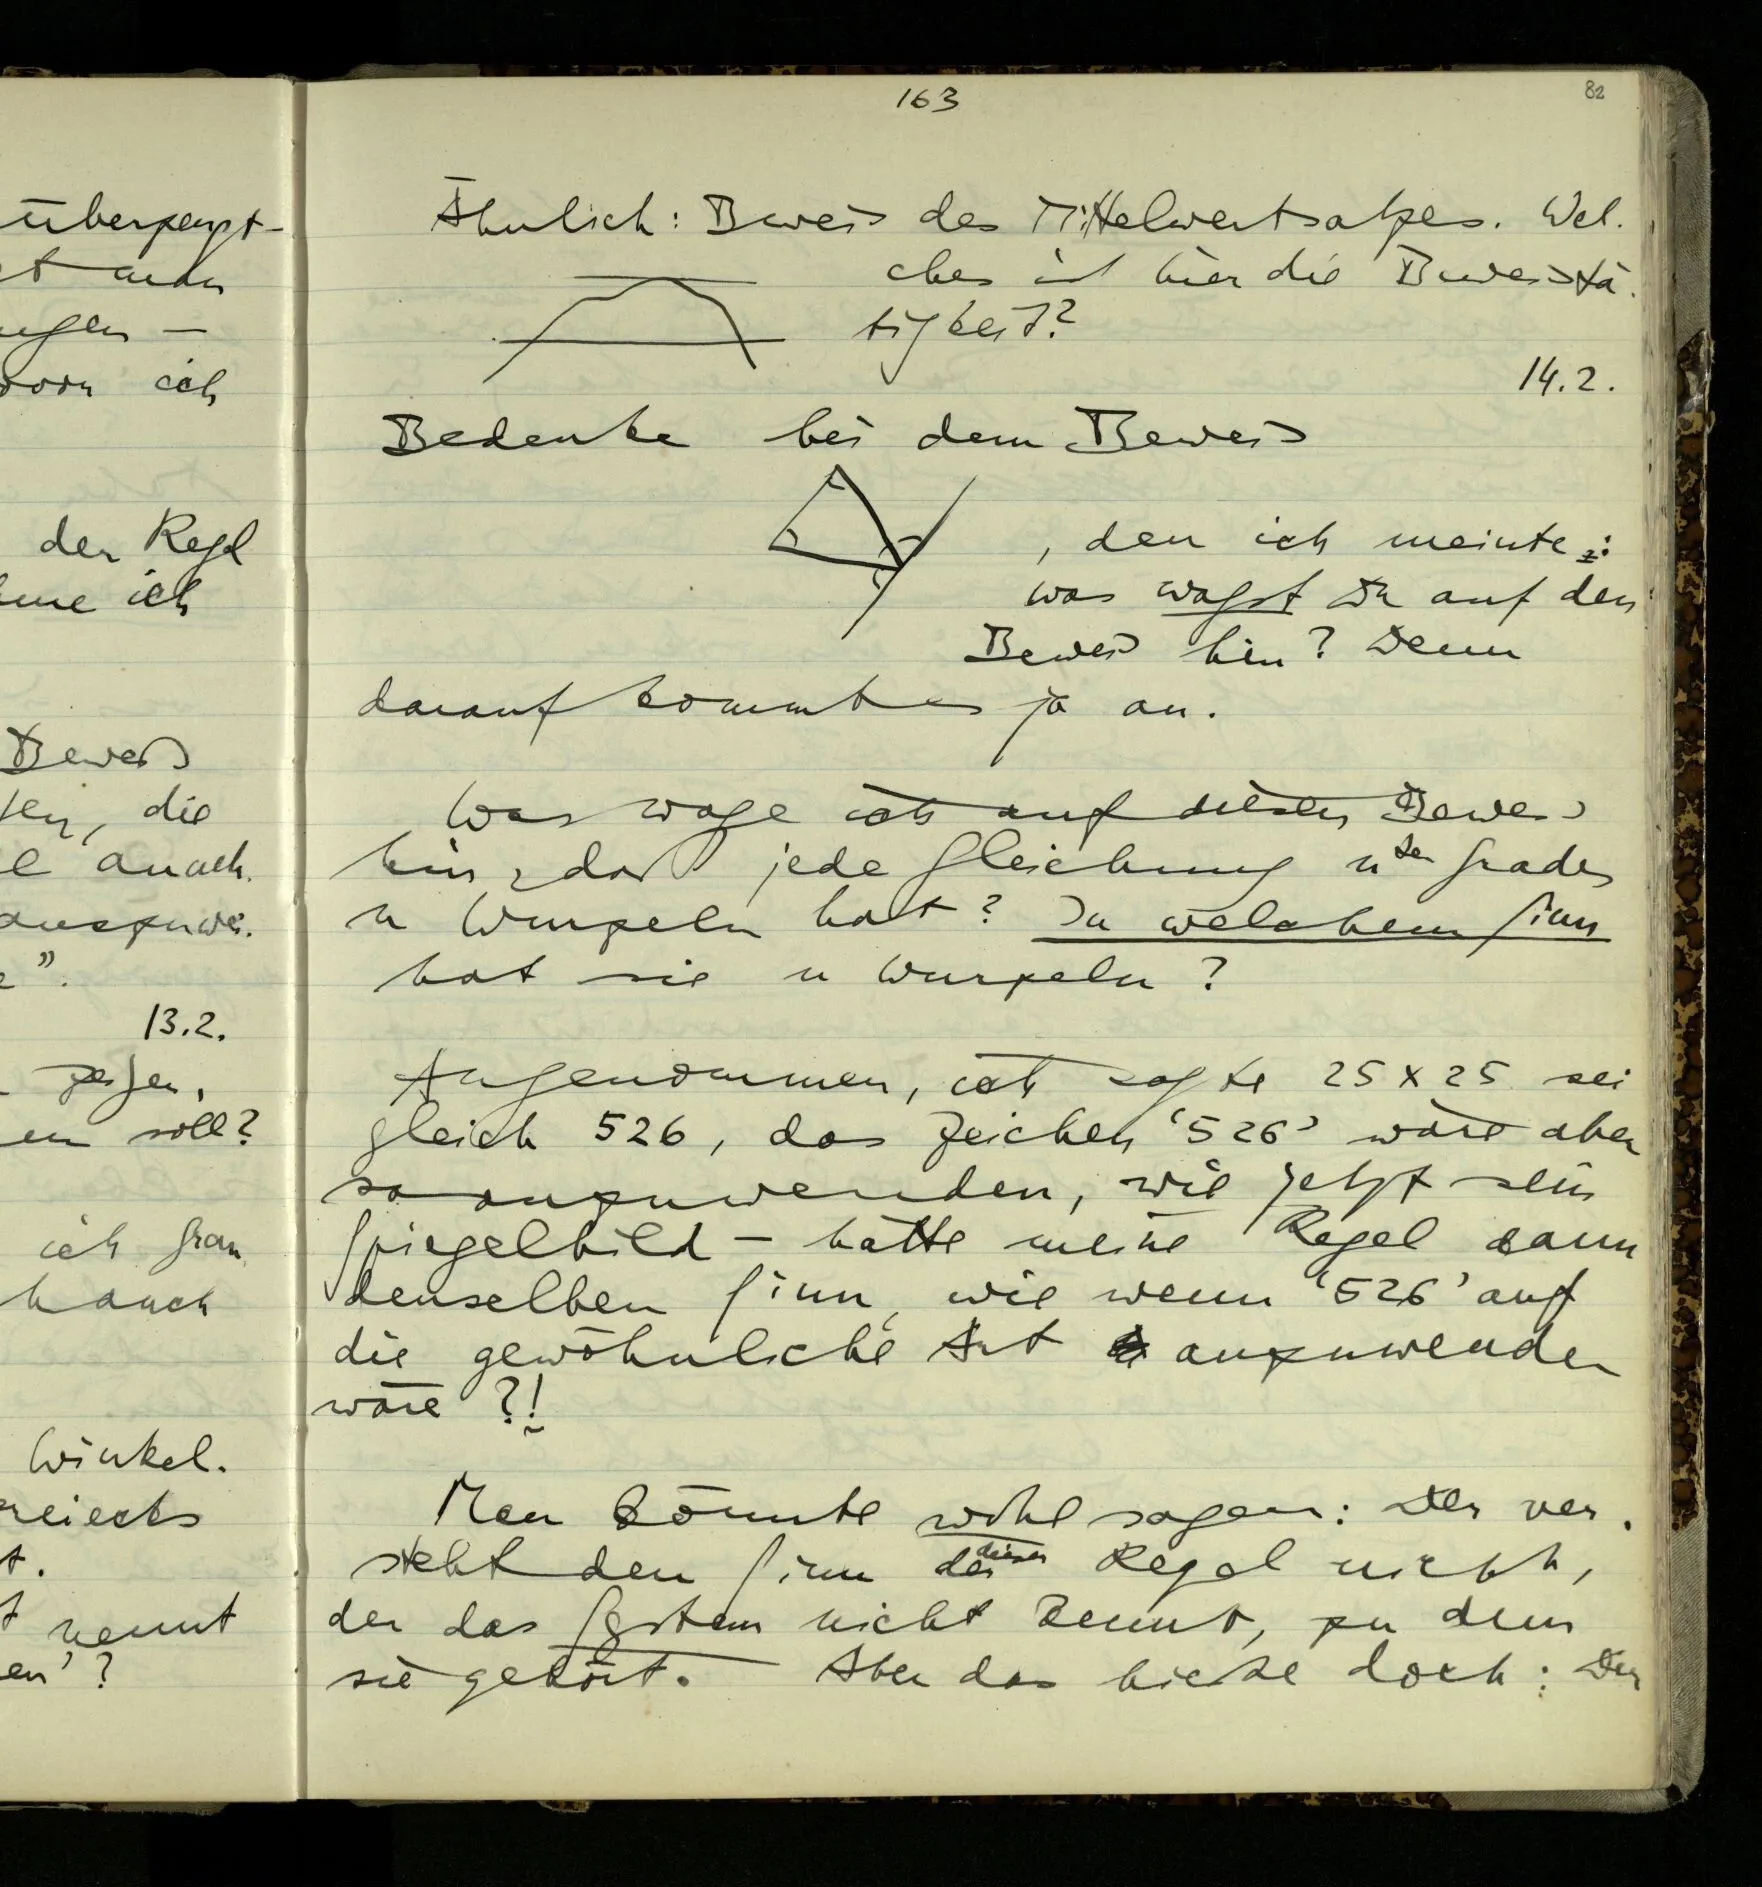 überzeugt-
t man
ngen —
wovon ich
der Regel
ich
Beweis
die
auspuwei.
”.
13.2.
zeigen,
soll?
ich
hauch
Winkel.
reiecks
t.
nennt
en’?
163
82
Ähnlich: Beweis des Mittelwertsatzes. Wel.
ches ist hier die Beweistä.
tigkeit?
14.2.
Bedenke bei dem Beweis
, den ich meinte:
was wagst Du auf den
Beweis hin? Denn
darauf kommt es ja an.
Was wage ich auf diesen Beweis
hin, daß jede Gleichung nten Grades
n Wurzeln hat? In welchem Sinn
hat sie n Wurzeln?
Angenommen, ich sagte 25 x 25 sei
gleich 526, das Zeichen ‘526’ wäre aber
so anzuwenden, wie jetzt sein
Spiegelbild – hätte meine Regel dann
denselben Sinn, wie wenn ‘526’ auf
die gewöhnliche Art anzuwenden
wäre?!
Man könnte wohl sagen: Der ver.
steht den Sinn dieser Regel nicht,
der das System nicht kennt, zu dem
sie gehört. Aber das hieße doch: Der